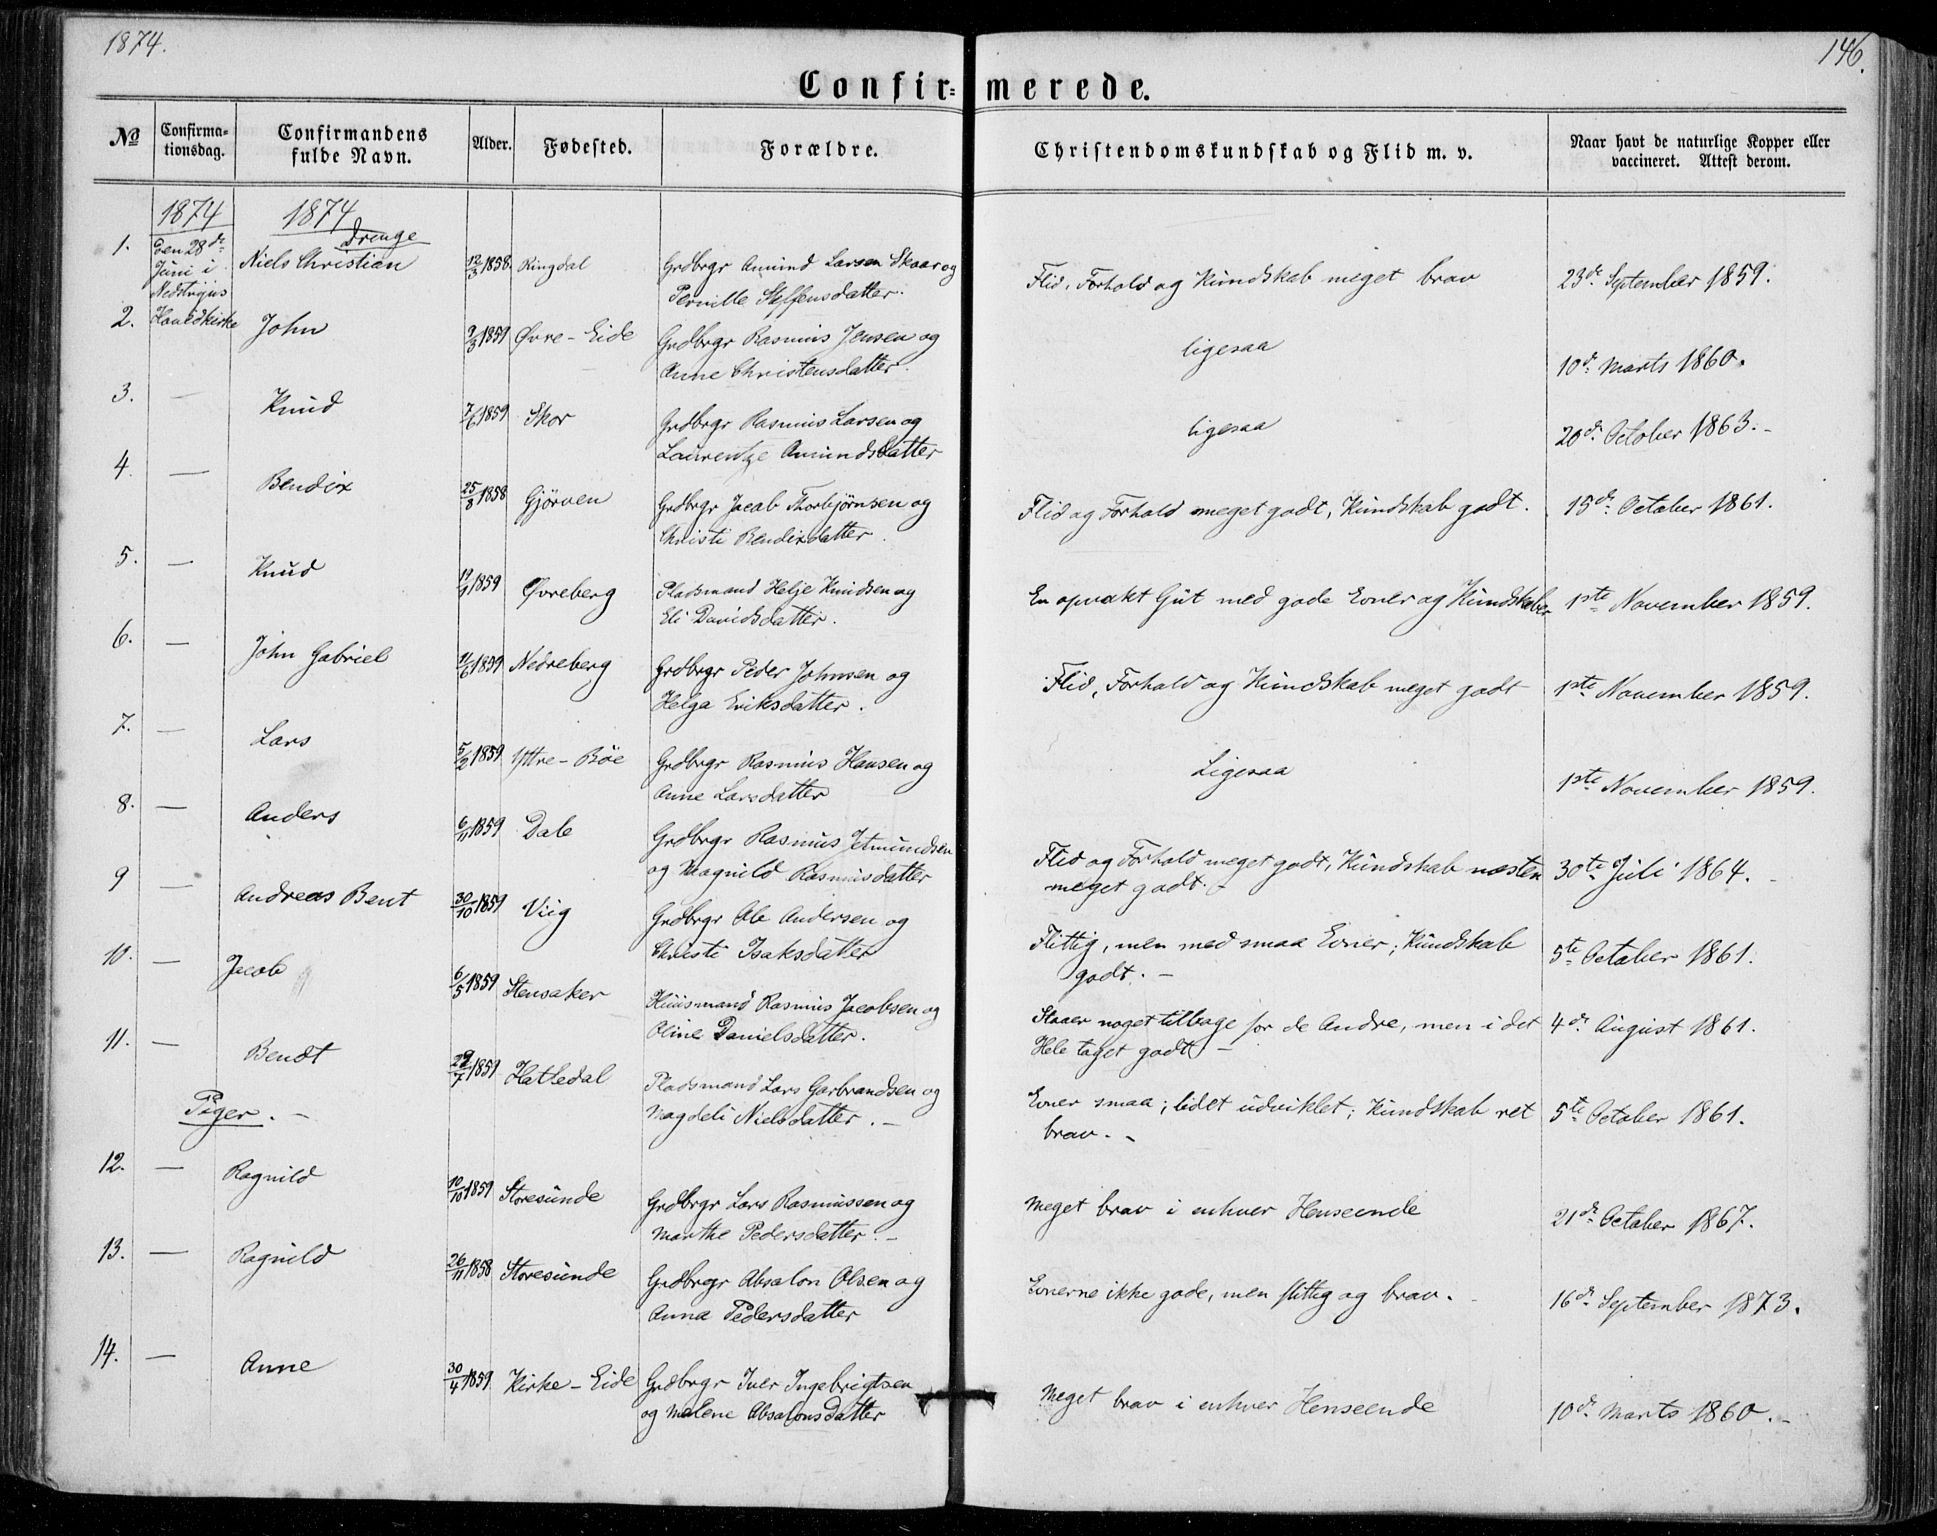 1874.
146.
Confir= merede.
No
Confirma-
tionsdag.
Confirmandens
fulde Navn.
Alder.
Fødested.
Forældre.
Christendomskundskab og Flid m. v.
Naar havt de naturlige Kopper eller
vaccineret. Attest derom.
1874 1874
Drenge
1. Den 28de Niels Christian 12/3 1858. Ringdal Grdbrgr Amund Larsen Skaar og Flid, Forhold og Kundskab meget brav 23de September 1859.
Juni i
Nedstryns Pernille Steffensdatter.
2. Hovedkirke John 9/3 1859 Øvre-Eide Grdbrgr Rasmus Jensen og ligesaa 10de Marts 1860.
Anne Christensdatter.
3. — Knud 7/6 1859 Skor Grdbrgr Rasmus Larsen og ligesaa 20de October 1863.-
Laurentze Amundsdatter
4. — Bendix 25/8 1858 Gjørven Grdbrgr Jacob Thorbjørnsen og Flid og Forhold meget godt, Kundskab godt. 15de October 1861.
Christi Bendixdatter.
5. — Knud 1859 Øvreberg Pladsmand Helje Knudsen og En opvakt Gut med gode Evner og Kundskaber 1ste November 1859.
Eli Davidsdatter.
6. — John Gabriel 1859 Nedreberg Grdbrgr Peder Johnsen og Flid, Forhold og Kundskab meget godt 1ste November 1859.
Helga Eriksdatter.
7. — Lars 5/2 1859 Yttre-Böe Grdbrgr Rasmus Hansen og Ligesaa 1ste November 1859.
Anne Larsdatter
8. — Anders 6/11 1859 Dale Grdbrgr Rasmus Jetmundsen Flid og Forhold meget godt, Kundskab næsten 30te Juli 1864. -
og Magnild Rasmusdatter meget godt.-
9 — Andreas Bent 30/10 1859 Viig Grdbrgr Ole Andersen og Flittig, men med smaa Evner; Kundskab 5te October 1861.
Christi Isaksdatter godt. -
10. — Jacob 6/5 1859 Stensaker Huusmand Rasmus Jacobsen og Staaer noget tilbage for de Andre, men i det 4de August 1861.
Oline Danielsdatter. Hele taget godt -
11. — Bendt 29/7 1859 Hatledal Pladsmand Lars Garbrandsen og Evner smaa; lidet udviklet; Kundskab ret 5te October 1861.
Magdeli Nielsdatter. - brav. -
Piger. -
12. — Ragnild 10/10 1859 Storesunde Grdbrgr Lars Rasmussen og Meget brav i enhver Henseende 21de October 1867.
Marthe Pedersdatter. -
13. — Ragnild 26/11 1858 Storesunde Grdbrgr Absalon Olsen og Evnerne ikke gode, men flittig og brav. - 16de September 1873.
Anna Pedersdatter
14. — Anne 30/4 1859 Kirke-Eide Grdbrgr Iver Ingebrigtsen Meget brav i enhver Henseende 10de Marts 1860. -
og Malene Absalonsdatter